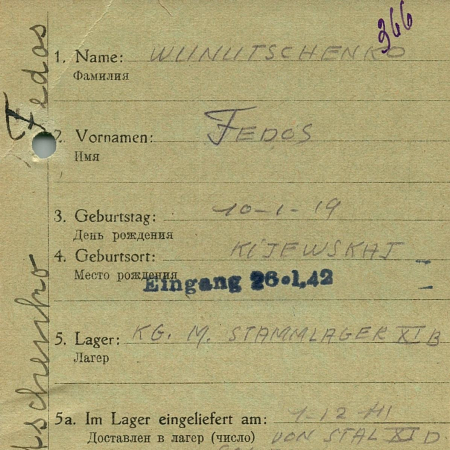 366
1. Name: WUNUTSCHENKO
Фамилия
2. Vornamen: FEDOS
Имя
3. Geburtstag: 10-1-19
День рождения
4. Geburtsort: KIJEWSKAJ
Место рождения
Eingang 26.1.42
5. Lager: KG. M. STAMMLAGER XI B
Лагерь
5a. Im Lager eingeliefert am: 1-12-41
Доставлен в лагерь (число) VON STAL XI D
Fedos